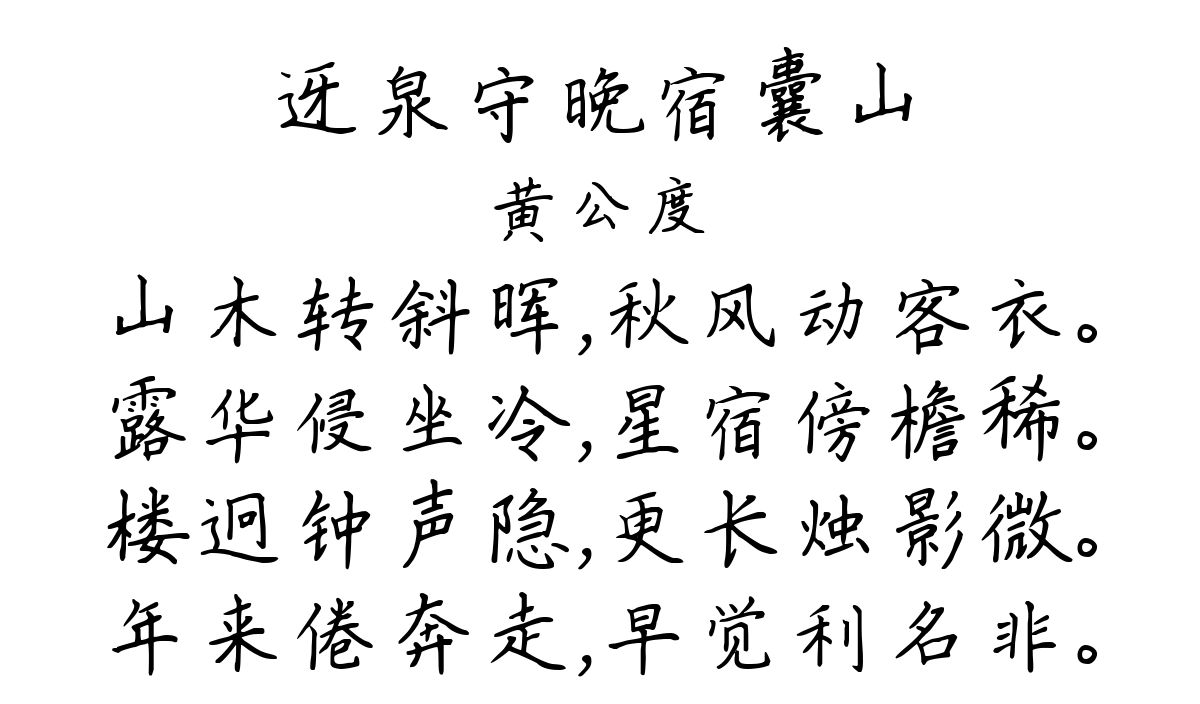 迓泉守晚宿囊山
黄公度
山木转斜晖,秋风动客衣。
露华侵坐冷,星宿傍檐稀。
楼迥钟声隐,更长烛影微。
年来倦奔走,早觉利名非。